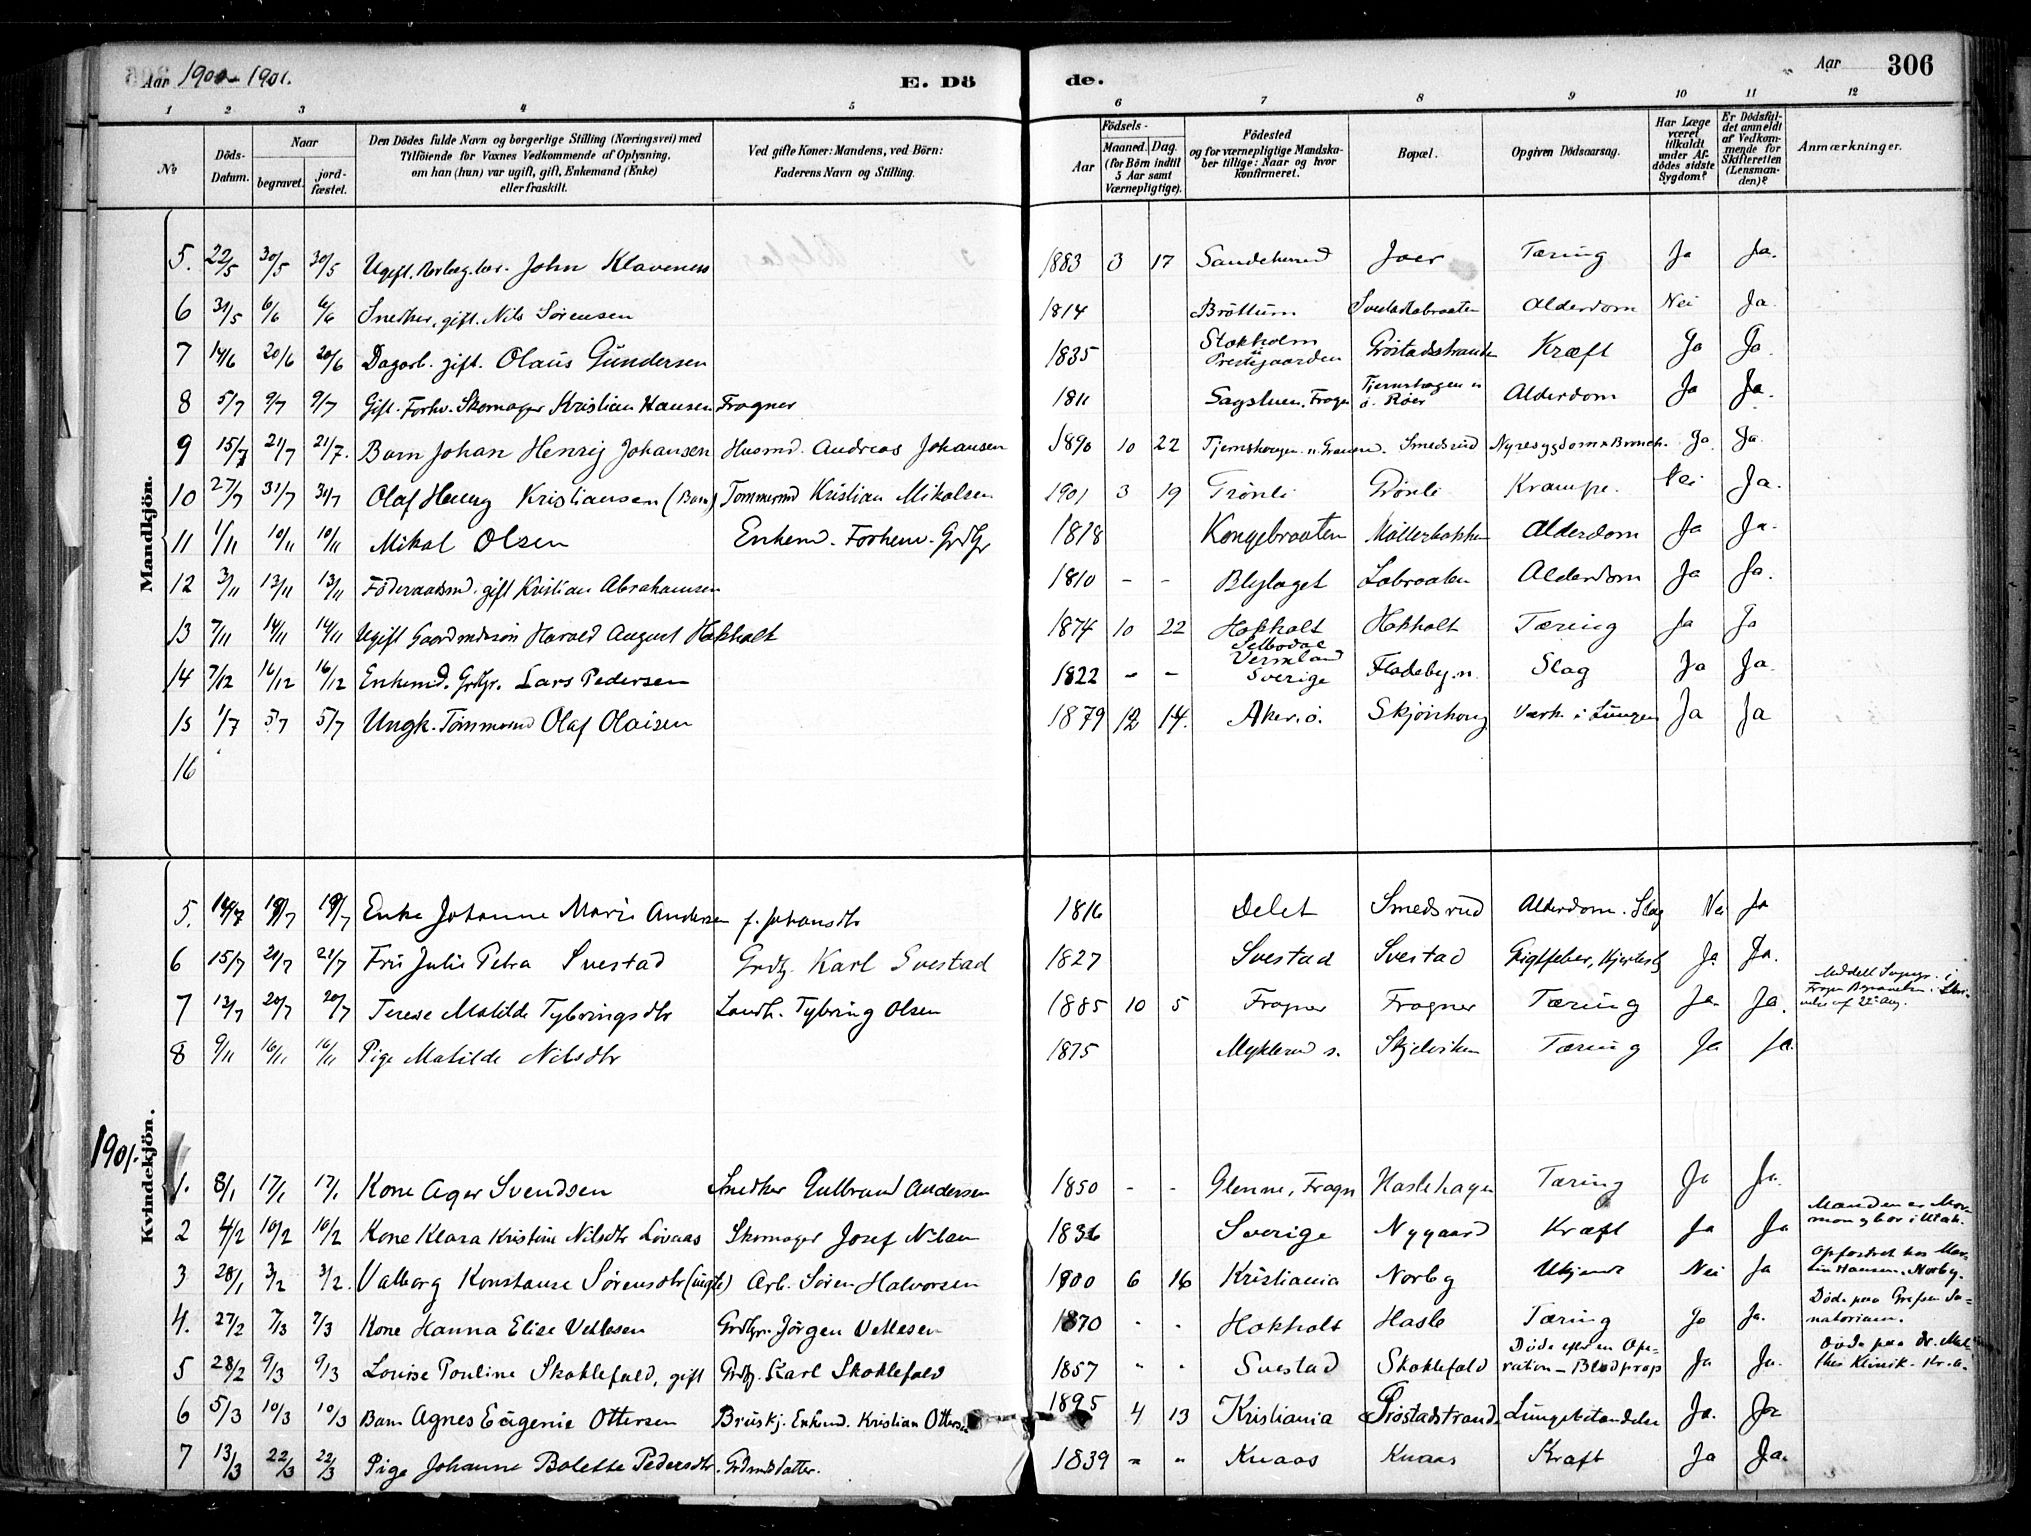 Aar 1900-1901.
E. Dö
de.
Aar
306
1 2 3 4 5 6 7 8 9 10 11 12
No
Döds-Datum.
Naar
begravet.
jord-fæstet.
Den Dödes fulde Navn og borgerlige Stilling (Næringsvei) med
Tilföiende for Voxnes Vedkommende af Oplysning,
om han (hun) var ugift, gift, Enkemand (Enke)
eller fraskilt.
Ved gifte Koner: Mandens, ved Börn:
Faderens Navn og Stilling.
Födsels-
Aar
Maaned. Dag.
(for Börn indtil
5 Aar samt
Værnepligtige).
Födested
og for værnepligtige Mandska-
ber tillige: Naar og hvor
konfirmeret.
Bopæl.
Opgiven Dödsaarsag.
Har Læge
været
tilkaldt
under Af-
dödes sidste
Sygdom?
Er Dödsfal-
det anmeldt
af Vedkom-
mende for
Skifteretten
(Lensman-
den)?
Anmærkninger.
Mandkjön.
5. 22/5 30/5 30/5 Ugift. John Klaveness 1883 3 17 Sandeherred Joer Tæring Ja Ja.
6 31/5 6/6 6/6 Snedker, gift. Nils Sørensen 1814 Brøttum Svestadbraaten Alderdom Nei Ja.
7 14/6 20/6 20/6 Dagarb. gift. Olaus Gundersen 1835 Stokholm Prestegaarden Grøstadstranden Kræft Ja Ja.
8 5/7 9/7 9/7 Gift. Forhv. Skomager Kristian Hansen Frogner 1811 Sagstuen, Frogn Tjernshagen u ö. Røer Alderdom Ja Ja.
9 15/7 21/7 21/7. Barn Johan Henrij Johansen Husmd. Andreas Johansen 1890 10 22 Tjernshaugen u. Smedsrud Nyresygdom Ja. Ja.
10 27/7 31/7 31/7 Olaf Henry Kristiansen (Barn) Tømmermd Kristian Mikalsen 1901 3 19 Grønli Grønli Krampe. Nei Ja.
11 1/11 10/11 10/11 Mikal Olsen Enkemd. Forhenv. Grdbr 1818 Kongebraaten Møllerbakken Alderdom Ja Ja.
12 3/11 13/11 13/11 Föderaadsmd. gift Kristian Abrahamsen 1810 - - Blylaget Labraaten Alderdom Ja Ja.
13 7/11 14/11 14/11 Ugift Gaardmdssøn Harald August Hokholt 1874 10 22 Hokholt Hokholt Tæring Ja Ja
14 7/12 16/12 16/12 Enkemd. Grdbr. Lars Pedersen 1822 - - Selbodal Vermland Sverige Fladeby. n. Slag Ja Ja.
15 1/7 5/7 5/7 Ungk. Tømmermd Olaf Olaisen 1879 12 14. Aker. ö. Skjønhoug Værk. i Lungen Ja Ja
16
Kvindekjön.
5. 14/7 19/7 19/7 Enke Johanne Marie Andersen f. Johansdtr 1816 Delet Smedsrud Alderdom. Slag Nei Ja
6 15/7 21/7 21/7 Fru Julie Petra Svestad Grdbr. Karl Svestad 1827 Svestad Svestad Gigtfeber, Ja. Ja.
7 13/7 20/7 20/7 Terese Matilde Tybringsdtr Landh. Tybring Olsen 1885 10 5 Frogner Frogner Tæring Ja. Ja. 22 Aug.
8 9/11 16/11 16/11 Pige Matilde Nilsdtr 1875 Myklerud s. Skjelviken Tæring Ja Ja.
1901.
1. 8/1 17/1 17/1 Kone Ager Svendsen Snedker Gulbrand Andersen 1850 - - Glenne, Frogn Haslehagen Tæring Ja Ja.
2 4/2 10/2 10/2 Kone Klara Kristine Nilsdtr Løvaas Skomager Josef Nilsen 1836 Sverige Nygaard Kræft Ja Ja Manden er Mor-
mon y bor i Utah.
3 28/1 3/2 3/2. Valborg Konstanse Sørensdtr (uægte) Arb. Søren Halvorsen 1900 6 16 Kristiania Norby Ukjendt Nei Ja Opfostret hos Mar-
tin Hansen. Norby.
4. 27/2 7/3 7/3 Kone Hanna Elise Vettesen Grdbr. Jørgen Vettesen 1870 " " Hokholt Hasle Tæring Ja Ja. Døde paa Grefsen Sa-
natorium.
5 28/2 9/3 9/3 Louise Pouline Skoklefald, gift Grdbr. Karl Skoklefald 1857 " " Svestad Skoklefald Døde efter en Ope-
ration - Blodprop Ja Ja. Døde paa Dr. Mal-
thes Klinik. Kr.a.
6 5/3 10/3 10/3 Barn Agnes Eugenie Ottersen Bruskj. Enkemd. Kristian Ottersen 1895 4 13 Kristiania Grøstadstrand Lungebetændelse Ja. Ja
7 13/3 22/3 22/3 Pige Johanne Bolette Pedersdtr. Grdmdsdatter. 1839 " " Knaas Knaas Kræft Ja Ja.